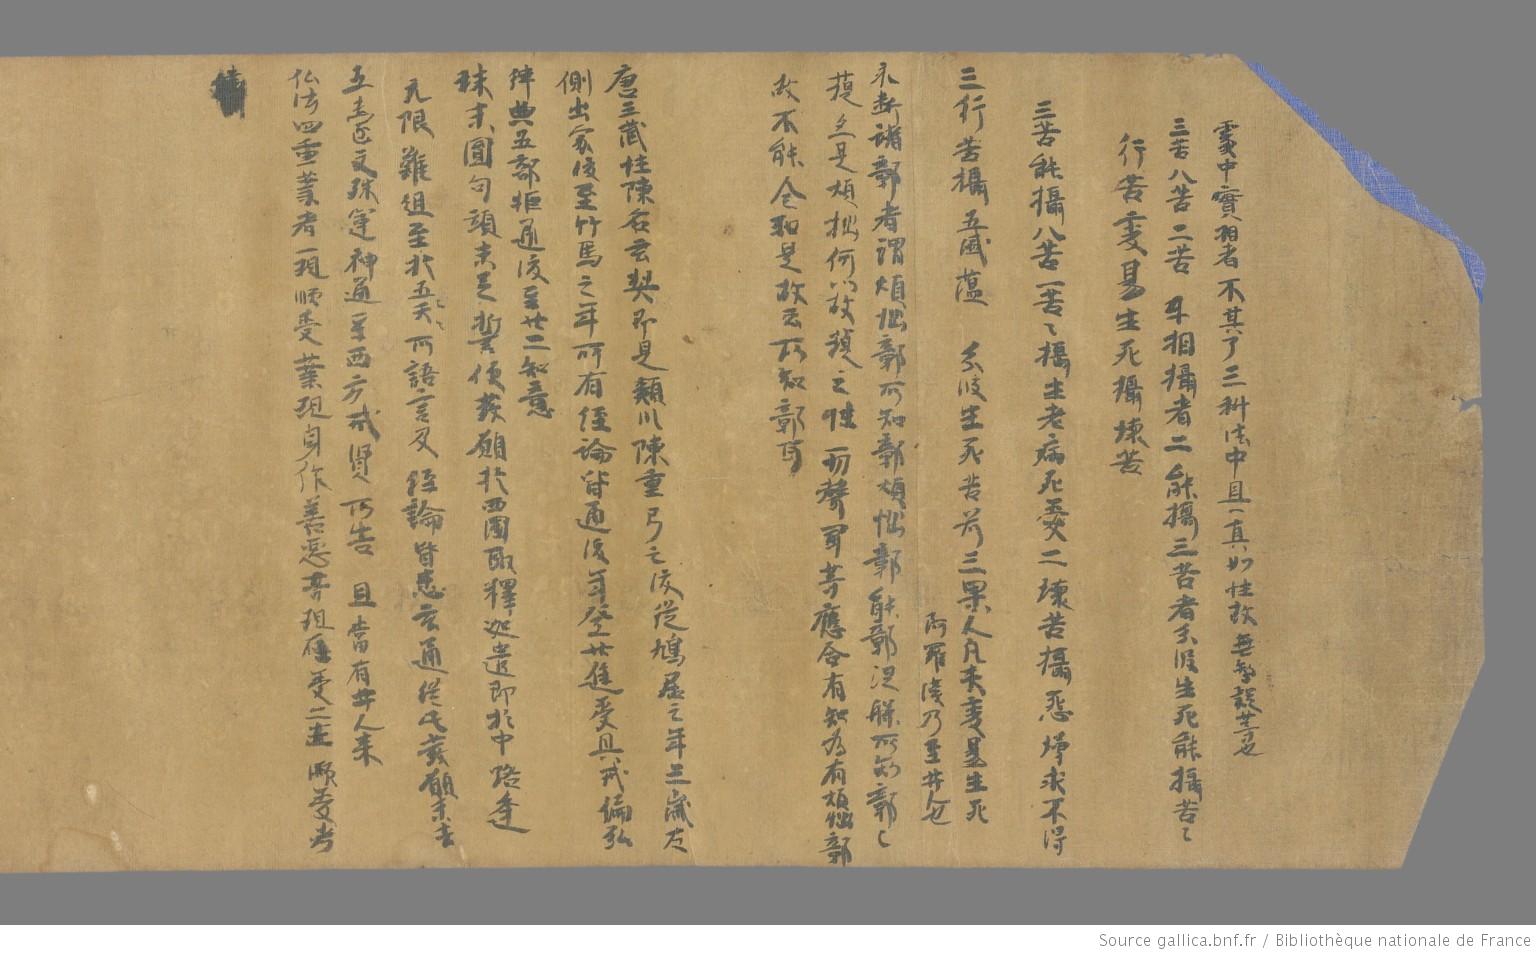 中實相者不其了三科法中且一真如性故無
三苦八苦二苦 互相攝者二能攝三苦者分段生死能攝苦〻
行苦變易生死攝壞苦
三苦能攝八苦一苦〻攝生老病死愛二壞苦攝怨憎求不得
三行苦攝五盛蘊 分段生死苦前三果人凡夫變易生死
阿羅漢乃至井人也
永斷諸鄣者謂煩惱鄣所知鄣煩惱鄣能鄣涅所知鄣〻
是煩惱何以故之性一切聲聞等應合有知為有煩惱鄣
故不能全知是故云所知鄣耳
唐三藏姓陳名玄奘即是潁川陳重弓之後從鳩居之年三歲在
側出家後至竹馬之年所有經論皆通後年登廿進受具戒偏弘
律典五部拒通後至廿二知意
未圓句頭未足誓便發願於西國取釋迦遺即於中路逢
凡限難但至於五天所語言及經論皆悉玄通從此發願未去
五文殊神通至西方戒賢所告且當有井人來
仏法四重業者一現順受業現身作善惡等現受二生順受者
Source gallica.bnf.fr / Bibliothèque nationale de France